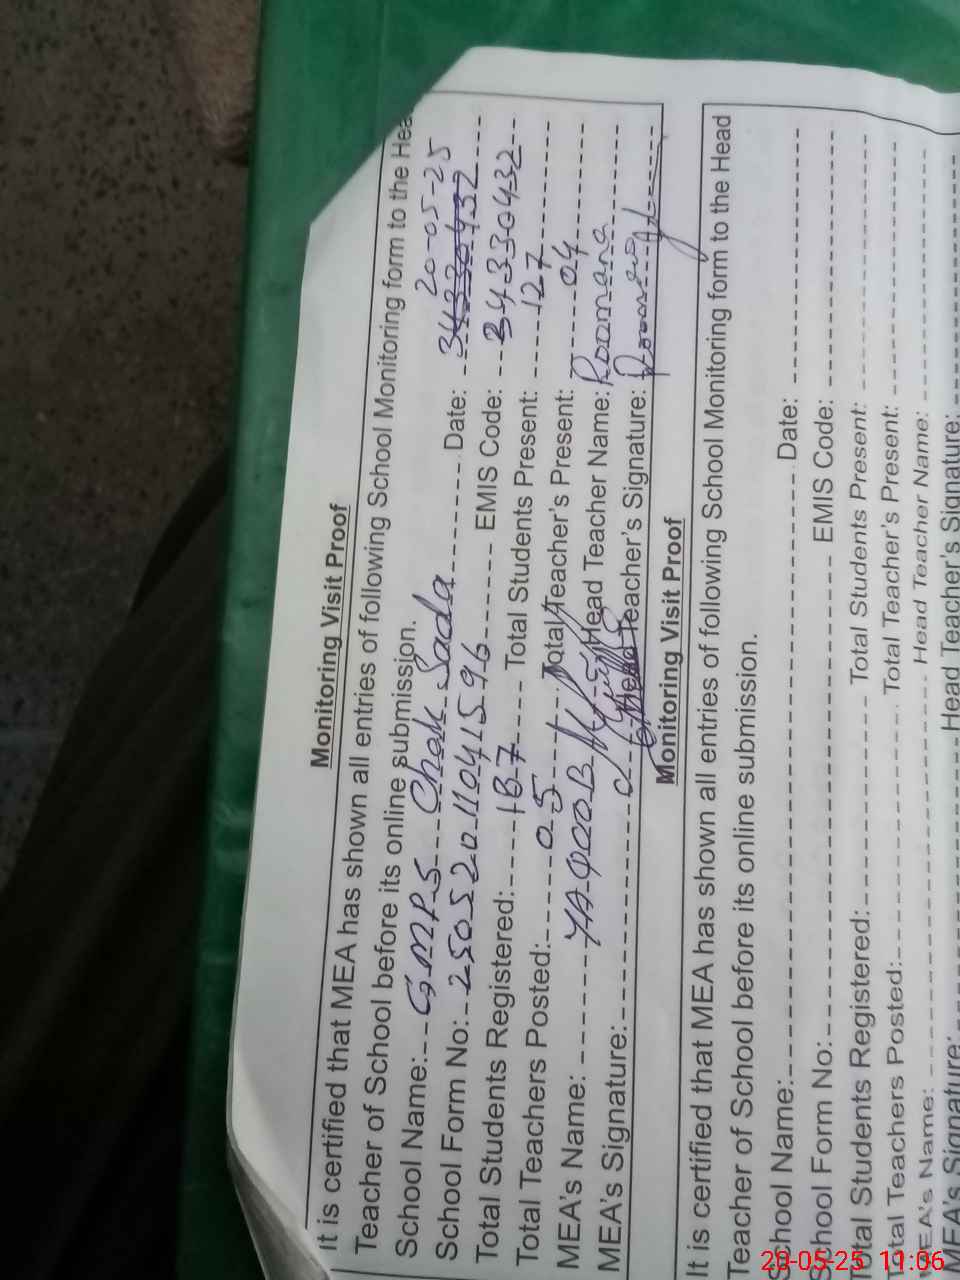 Monitoring Visit Proof
It is certified that MEA has shown all entries of following School Monitoring form to the Hea
Teacher of School before its online submission. 20-05-25
School Name: GMPS Chak Sada Date: 34330432
School Form No: 25052011041596 EMIS Code: 34330432
Total Students Registered: 137 Total Students Present: 127
Total Teachers Posted: 05 Total Teacher's Present: 04
MEA's Name: YAQOOB Head Teacher Name: Roomana
MEA's Signature: Head Teacher's Signature:
Monitoring Visit Proof
It is certified that MEA has shown all entries of following School Monitoring form to the Head
Teacher of School before its online submission.
School Name: Date:
School Form No: EMIS Code:
Total Students Registered: Total Students Present:
Total Teachers Posted: Total Teacher's Present:
MEA's Name: Head Teacher Name:
MEA's Signature: Head Teacher's Signature:
20-05-25 11:06